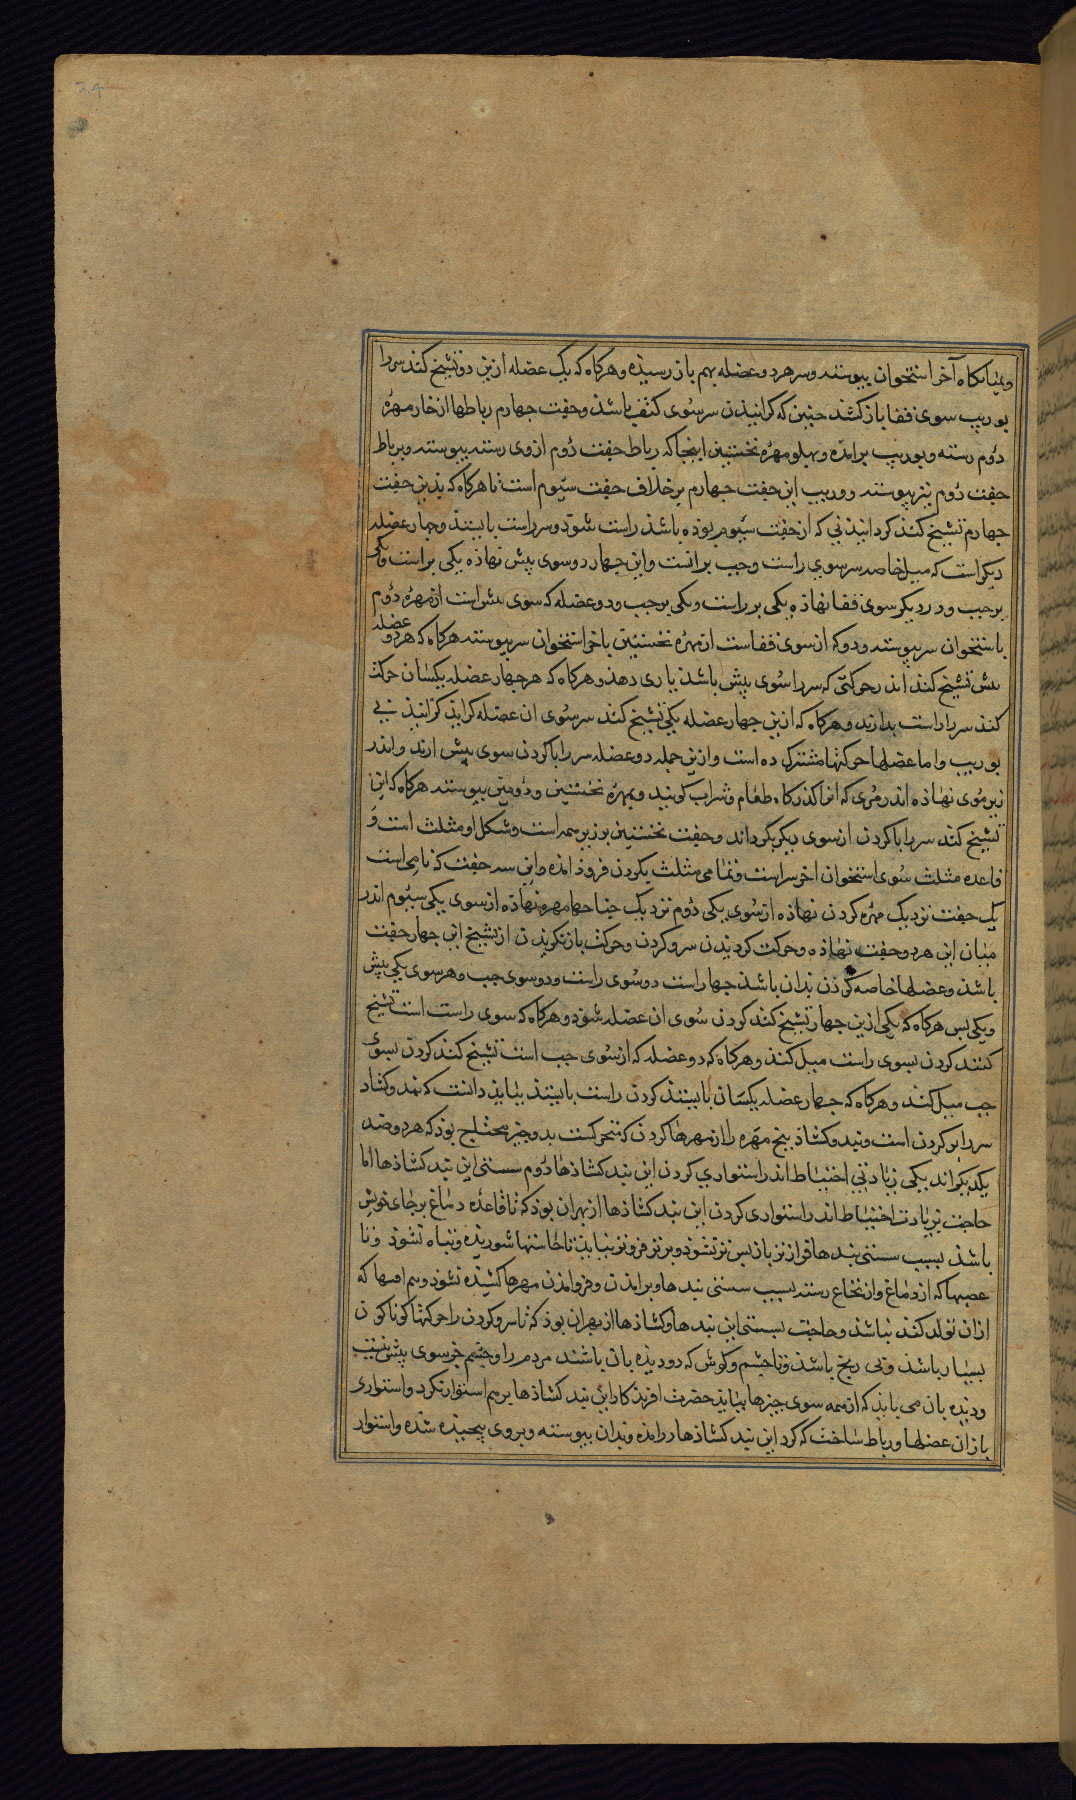 24
ومیانکاه آخر استخوان پیوسته وسر هر دو عضله بهم باز رسیذه وهرکاه که یک عضله ازین دو تشنج کند سر را
بوریب سوی قفا باز کشد چنین که کرانیذن سر سُوی کتف باشذ وجفت جهارم رباطها از خار مهرهٔ
دُوم رسته وبوریب برامذه وپهلو مهرهٔ نخستین اینجا که رباط جفت دُوم ازوی رسته پیوسته وبرباط
جفت دُوم نیز پیوسته ووریب این جفت جهارم برخلاف جفت سیُوم است تا هرکاه که بذین جفت
جهارم تشنج کند کردانیذنی که از جفت سیُوم بوذه باشذ راست شوذ وسر راست بایستذ وجهار عضله
دیکر است که میل خاصه سر سوی راست وجب برانست واین جهار دو سوی پیش نهاذه یکی بر راست ویکی
برجب ودو دیکر سوی قفا نهاذه یکی بر راست ویکی برجب ودو عضله که سوی پیش است از مهره دُوم
باستخوان سر پیوسته ودو که از سوی قفاست از مهرهٔ نخستین باخر استخوان سر پیوسته هرکاه که هر دو عضله
پیش تشنج کنذ اندر حرکتی که سر را سُوی پیش باشذ یاری دهذ وهرکاه که هر جهار عضله یکسان حرکت
کنذ سر را راست بدارند وهرکاه که ازین جهار عضله یکی تشنج کند سر سُوی ان عضله کرایذ کرانیذنی بی
بوریب واما عضلها حرکتها مشترک ده است وازین جمله دو عضله سر را با کردن سوی پیش ارند واندر
زیر مُوی نهاذه اندر مُری که انرا کذرکاه طعام وشراب کویند وبمهرهٔ نخستین ودُومین پیوسته هرکاه که این
تشنج کند سر را با کردن از سوی دیکر بکرداند وجفت نخستین بر زبر همه است وشکل او مثلث است و
قاعده مثلث سُوی استخوان اخر سر است وتمامی مثلث بکردن فروذ امذه واین سه جفت که نامی است
یک جفت نزدیک مهرهٔ کردن نهاذه از سُوی یکی دُوم نزدیک جناحها مهره نهاذه از سوی یکی سیُوم اندر
میان این هر دو جفت نهاذه وحرکت کردیذن سر وکردن وحرکت باز نکریذن از تشنج این جهار جفت
باشذ وعضلها خاصه کردن بذان باشذ جهار است دو سُوی راست ودو سوی جب وهر سوی یکی پیش
ویکی پس هرکاه که یکی ازین جهار تشنج کند کردن سُوی ان عضله شوذ وهرکاه که سوی راست است تشنج
کنند کردن بسوی راست میل کنذ وهرکاه که دو عضله که از سُوی جب است تشنج کند کردن بسوی
جب میل کند وهرکاه که جهار عضله یکسان بایستذ کردن راست بایستذ بباید دانست که بند وکشاد
سر را بر کردن است وبند وکشاذ پنج مهره را از مهرها کردن که بحرکت بدو جیز محتاج بوذ که هر دو ضد
یکدیکراند یکی زیادتی احتیاط اندر استواری کردن این بند کشاذها دُوم سستی این بند کشاذها اما
حاجت بزیادت احتیاط اندر استواری کردن این بند کشاذها از بهر ان بوذ که تا قاعده دماغ بر جای خویش
باشذ بسبب سستی بندها فراز تر باز پس تر نشوذ وبر تر فرو تر نیایذ تا حاستها شوریذه وتباه نشوذ وتا
عصبها که از دماغ واز نخاع رسته بسبب سستی بندها وبرامذن وفروامذن مهرها کشیذه نشوذ وبیم افتها که
ازان تولد کند نباشذ وحاجت بسستی این بندها وکشاذها از بهر ان بوذ که تا سر وکردن را حرکتها کوناکون
بسیار باشذ وبی رنج باشذ وتا چشم وکوش که دو دیذه بان باشند مردم را وچشم جز سوی پیش نبیند
ودیذه بان می بایذ که از همه سوی جیزها بیاید حضرت افریذکار این بند کشاذها برهم استوار نکرد واستواری
باز ان عضلها ورباط ساخت که کرد این بند کشاذها در امذه وبدان پیوسته وبروی پیچیذه شده واستوار